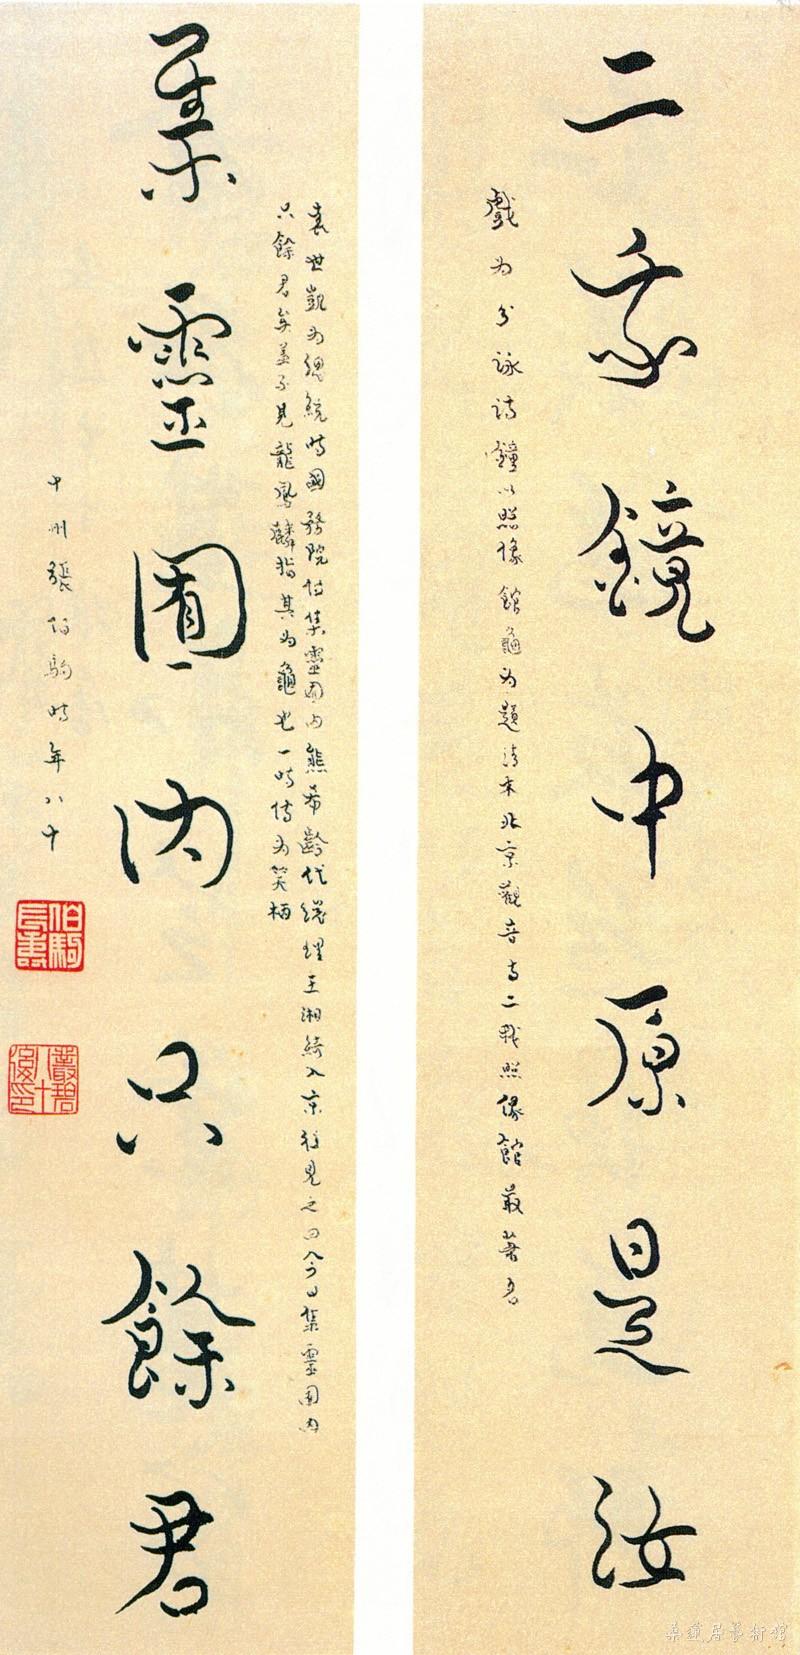 二我鏡中原是汝
戲為分詠詩鐘以照像館龜為題清末北京觀音寺二我照像館最著名
袁世凱為總統時國務院集靈囿內熊希齡代總理王湘綺入京往見之曰今日集靈囿內
只餘君矣蓋不見龍鳳麟指其為龜也一時傳為笑柄
集靈囿內只餘君
中州張伯駒時年八十
伯駒長壽
叢碧八十後印